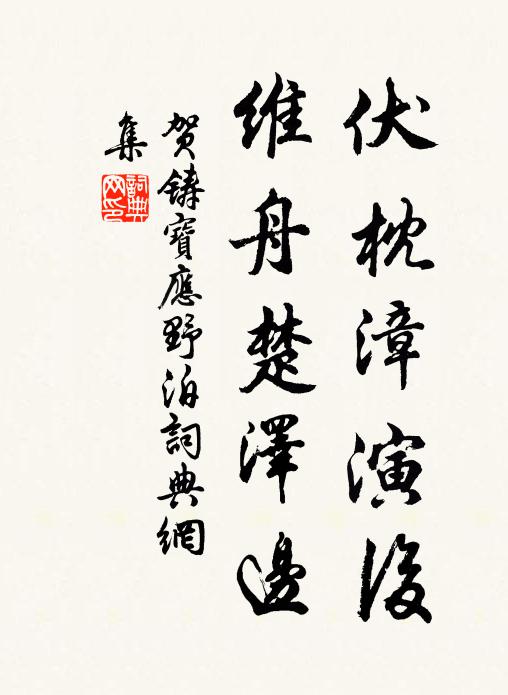 伏枕漳演後
維舟楚澤邊
賀鑄寶應野泊詞典網
集
詞典網印